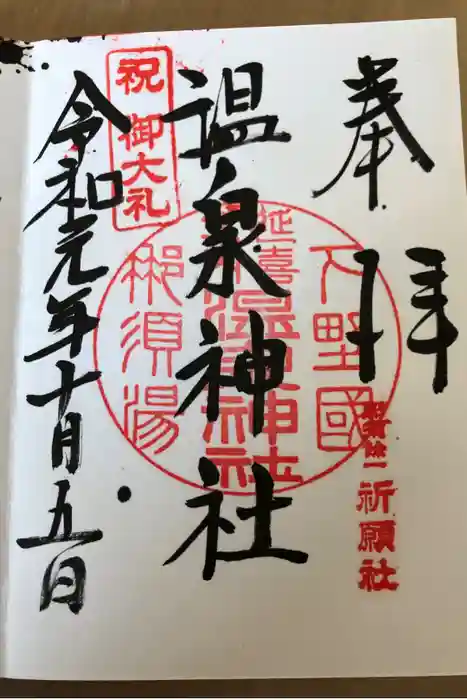 奉拝
祈願社
下野國
延喜
温泉神社
那須湯
温泉神社
祝御大礼
令和元年十月五日